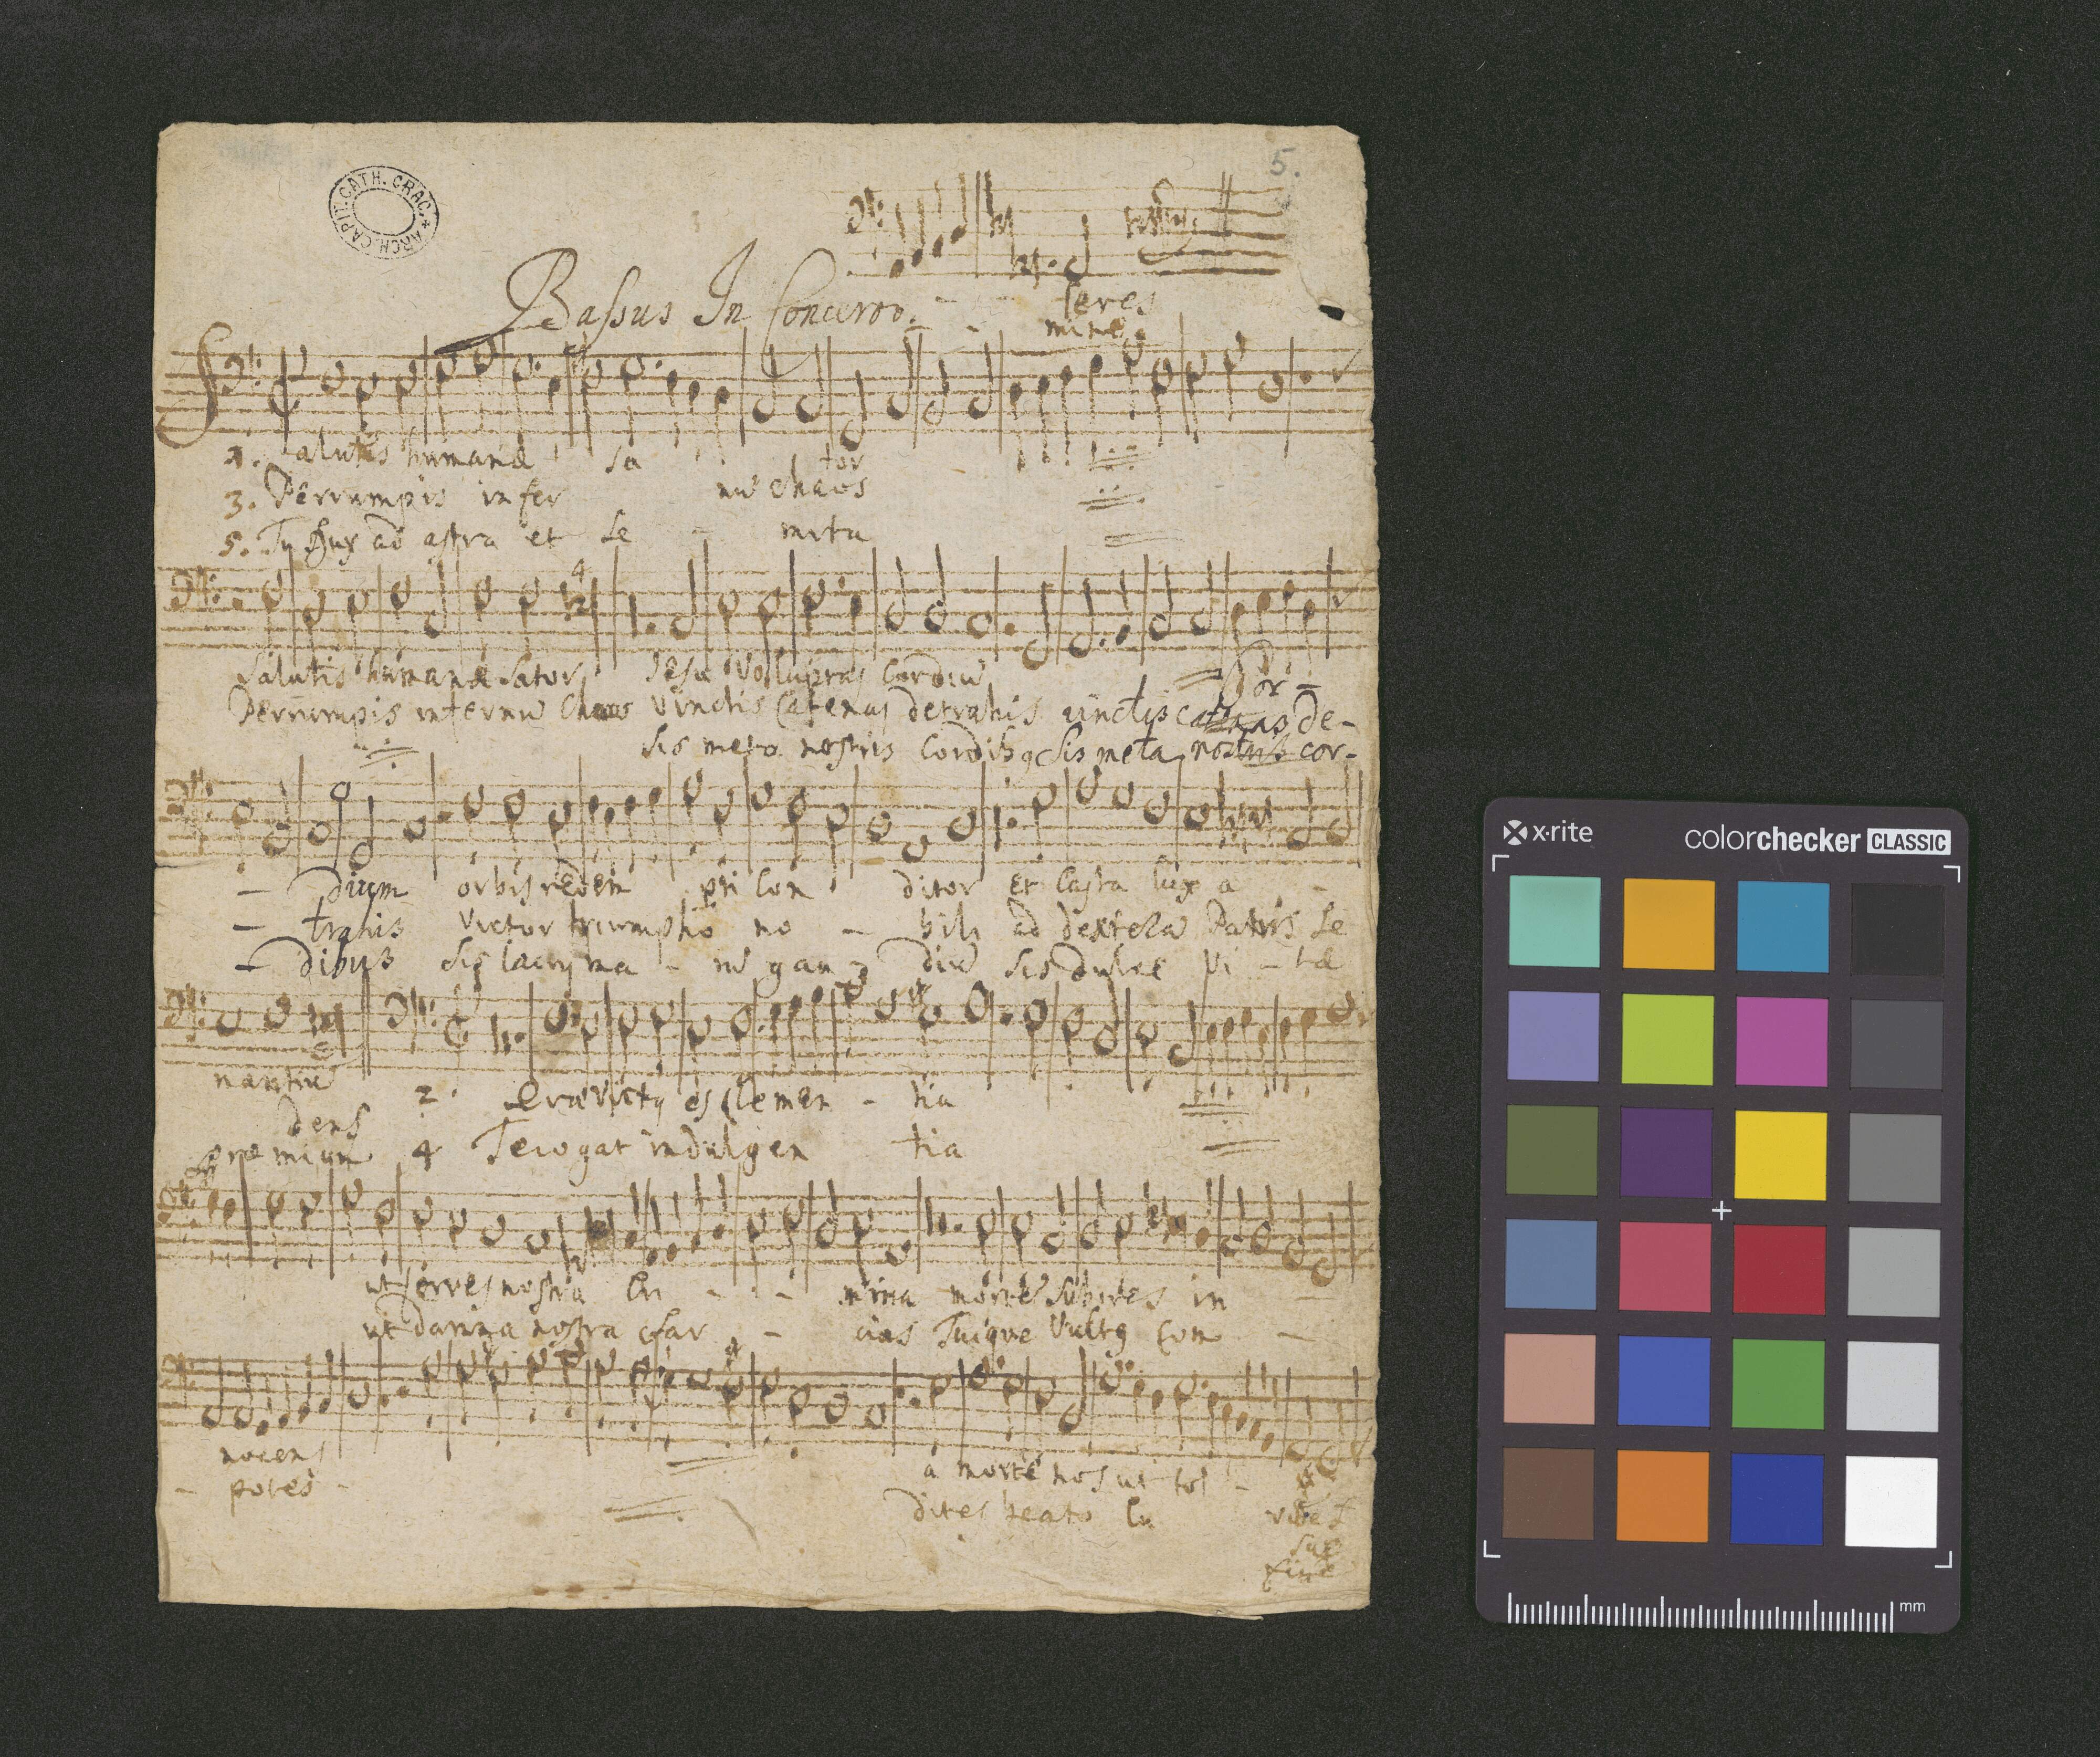 5.
ARCH. CAPIT. CATH. CRAC.
Bassus In Concerto.
feres
mine
1. Salutis humanæ sa tor
3. Perrumpis infer nu chaos
5. Tu Dux ad astra et se - mita
4
Salutis humanæ Sator Jesu Voluptas Cordiu
Cor-
Perrumpis infernu Chaos Vinctis Catenas detrahis vinctis catenas de-
sis meta nostris Cordibq sis meta nostris cor-
- dium orbis redem pti Con ditor et Casta lux a -
- trahis Victor triumpho no - bili ad dextera Patris se
- dibus sis lacryma - ru gau diu sis dulce vi - tæ
mantiu 2. Quavictq es Clemen - tia
dens
præmium 4 Te cogat indulgen tia
ut ferres nostra cri - - mina morte Subires in -
ut damna nostra sar - cias Tuique Vultq com -
nocens a morte nos ut tol -
- potes - dites beato lu
x-rite colorchecker CLASSIC
mm